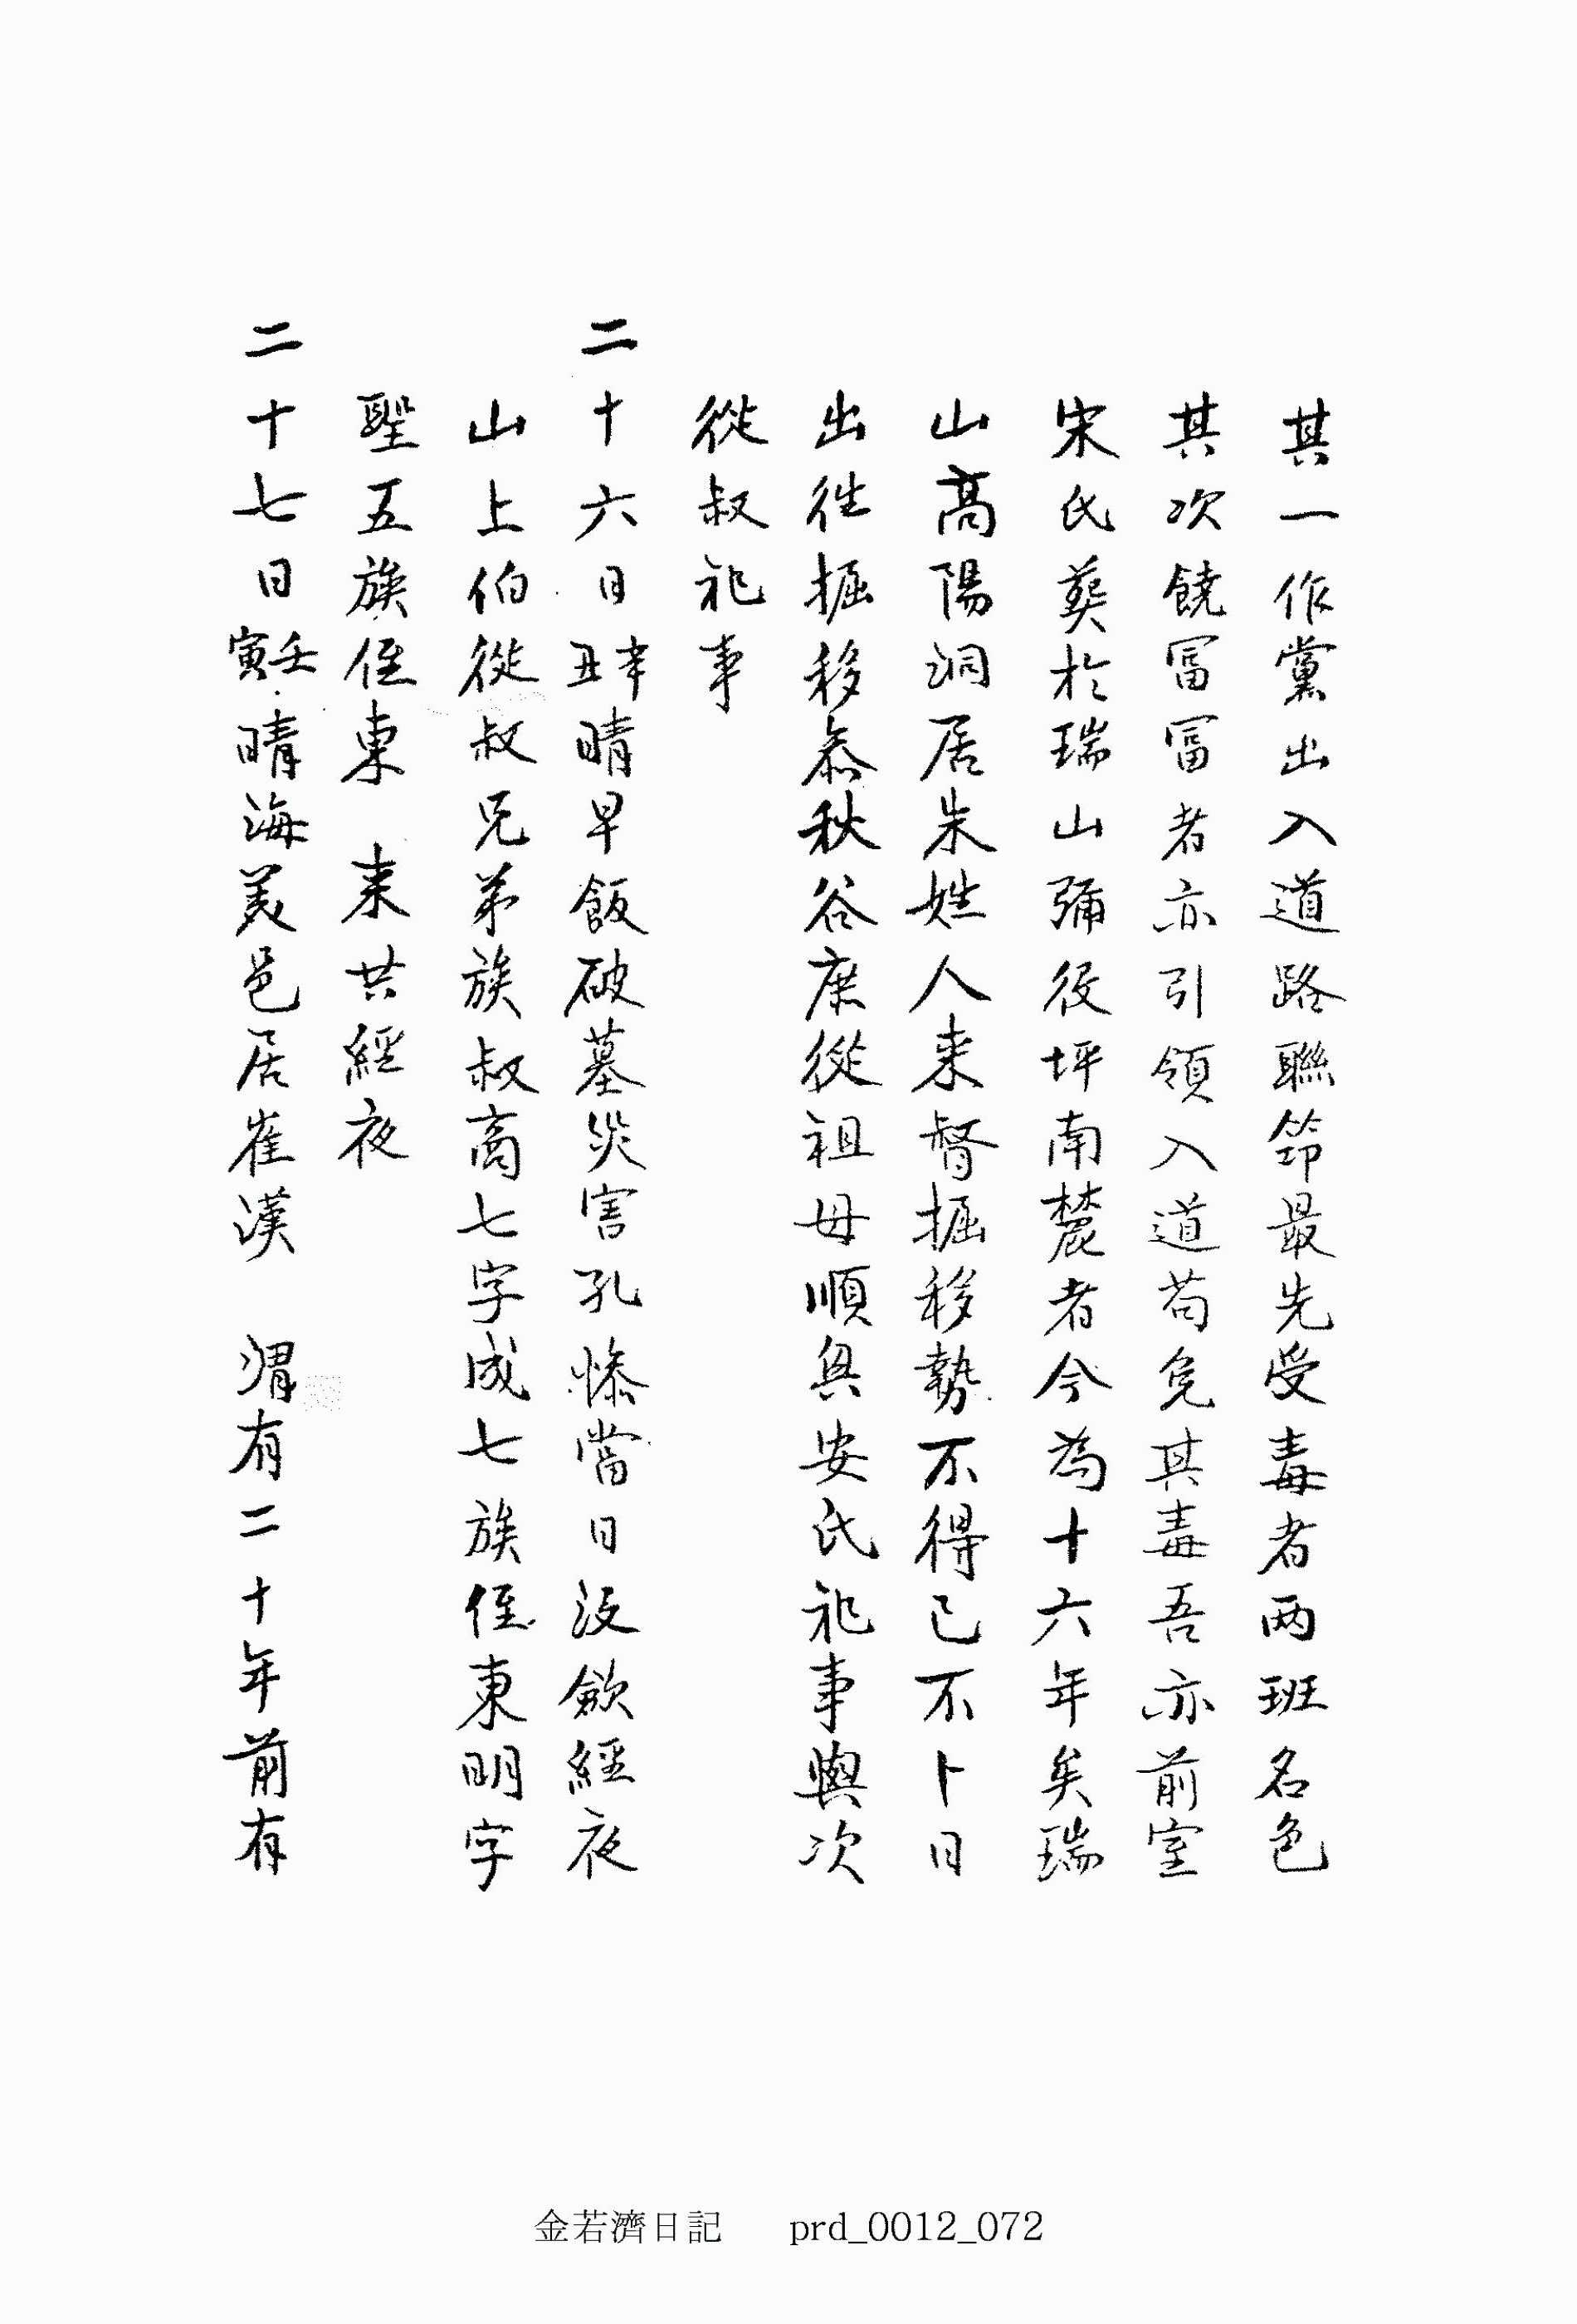 其一作黨出入道路聯節最先受毒者两班名色
其次饒冨冨者亦引領入道苟免其毒吾亦前室
宋氏葬於瑞山彌役坪南麓者今為十六年矣瑞
山髙陽洞居朱姓人来督掘移勢不得已不卜日
出徃掘移泰秋谷庶從祖母順興安氏祀事與次
從叔祀事
二十六日辛丑晴早飯破墓災害孔慘當日没斂經夜
山上伯從叔兄弟族叔商七字成七族侄東明字
聖五族侄東 来共經夜
二十七日壬寅晴海美邑居崔漢 渭有二十年前有
金若濟日記 prd_0012_072